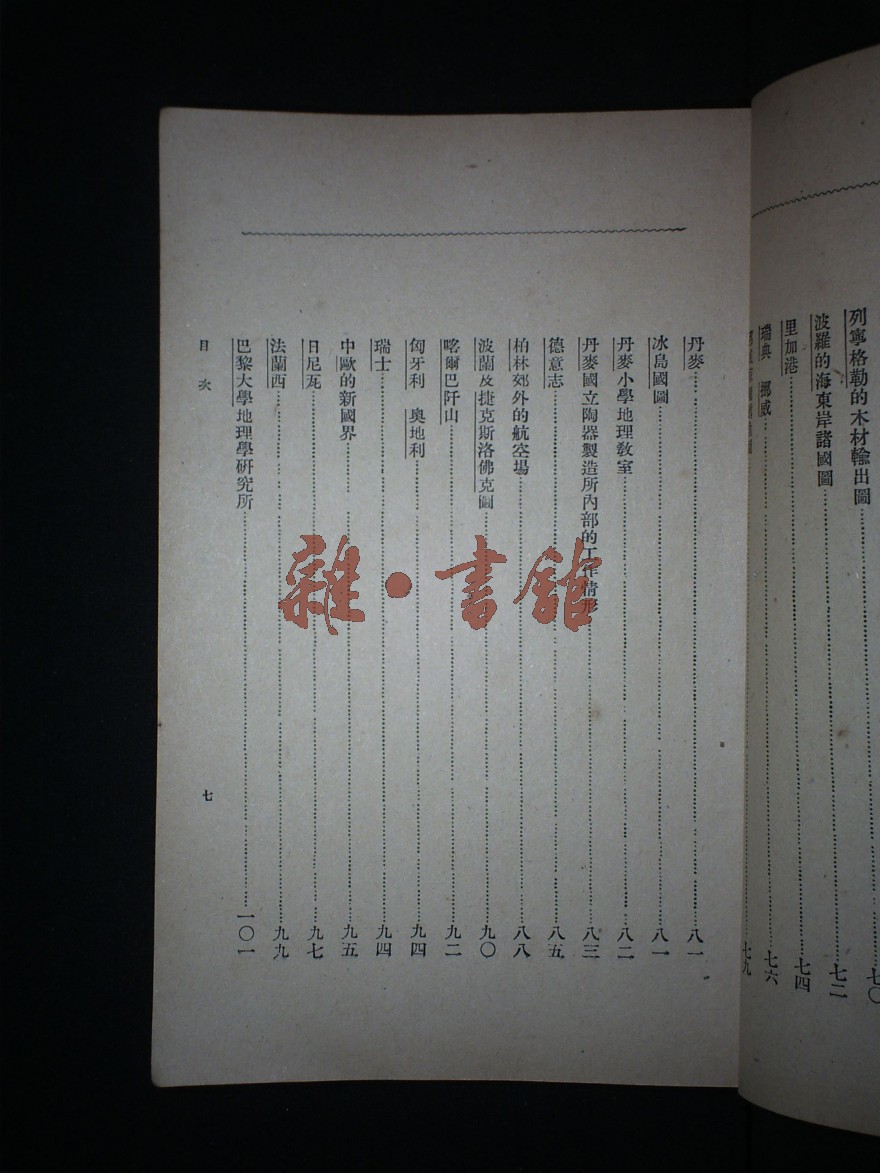 列寧格勒的木材輸出圖……七〇
波羅的海東岸諸國圖……七二
里加港……七四
瑞典　挪威……七六
七九
丹麥……八一
冰島國圖……八一
丹麥小學地理教室……八二
丹麥國立陶器製造所內部的工作情形……八三
德意志……八五
柏林郊外的航空場……八八
波蘭及捷克斯洛佛克圖……九〇
喀爾巴阡山……九二
匈牙利　奧地利……九四
瑞士……九四
中歐的新國界……九五
日尼瓦……九七
法蘭西……九九
巴黎大學地理學研究所……一〇一
目次
七
雜·書館